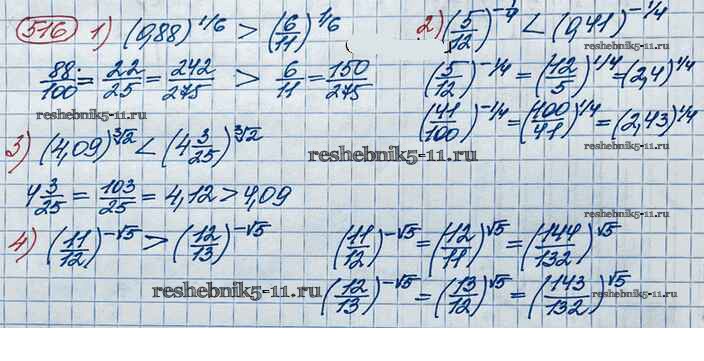 516 1) (0,88)^1/6 > (6/11)^1/6
88/100 = 22/25 = 242/275 > 6/11 = 150/275
2) (5/12)^-1/4 < (0,41)^-1/4
reshebnik5-11.ru
(5/12)^-1/4 = (12/5)^1/4 = (2,4)^1/4
(41/100)^-1/4 = (100/41)^1/4 = (2,43)^1/4
reshebnik5-11.ru
3) (4,09)^∛2 < (4 3/25)^∛2
reshebnik5-11.ru
4 3/25 = 103/25 = 4,12 > 4,09
reshebnik5-11.ru
4) (11/12)^-√5 > (12/13)^-√5
(11/12)^-√5 = (12/11)^√5 = (144/132)^√5
(12/13)^-√5 = (13/12)^√5 = (143/132)^√5
reshebnik5-11.ru
reshebnik5-11.ru